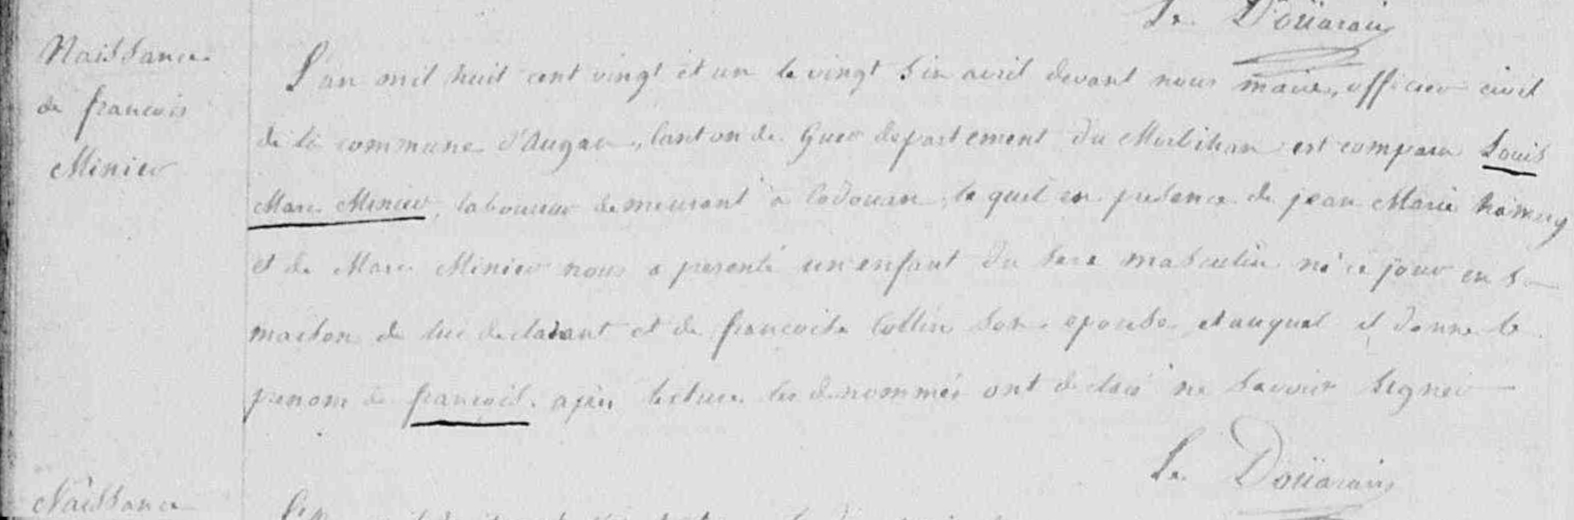 Le Doüarain
Naissance
de françois
Minier
L'an mil huit cent vingt et un le vingt six avril devant nous maire, officier civil
de la commune d'Augan, canton de Guer departement du Morbihan est comparu Louis
Marc Minier, laboureur demeurant a lequel en presence de jean Marie hamery
et de Marc Minier nous a presenté un enfant du sexe masculin né ce jour en sa
maison de lui declarant et de francoise Collin son epouse et auquel il donne le
prenom de françois. apres lecture les denommés ont declaré ne savoir signer
Le Doüarain
Naissance